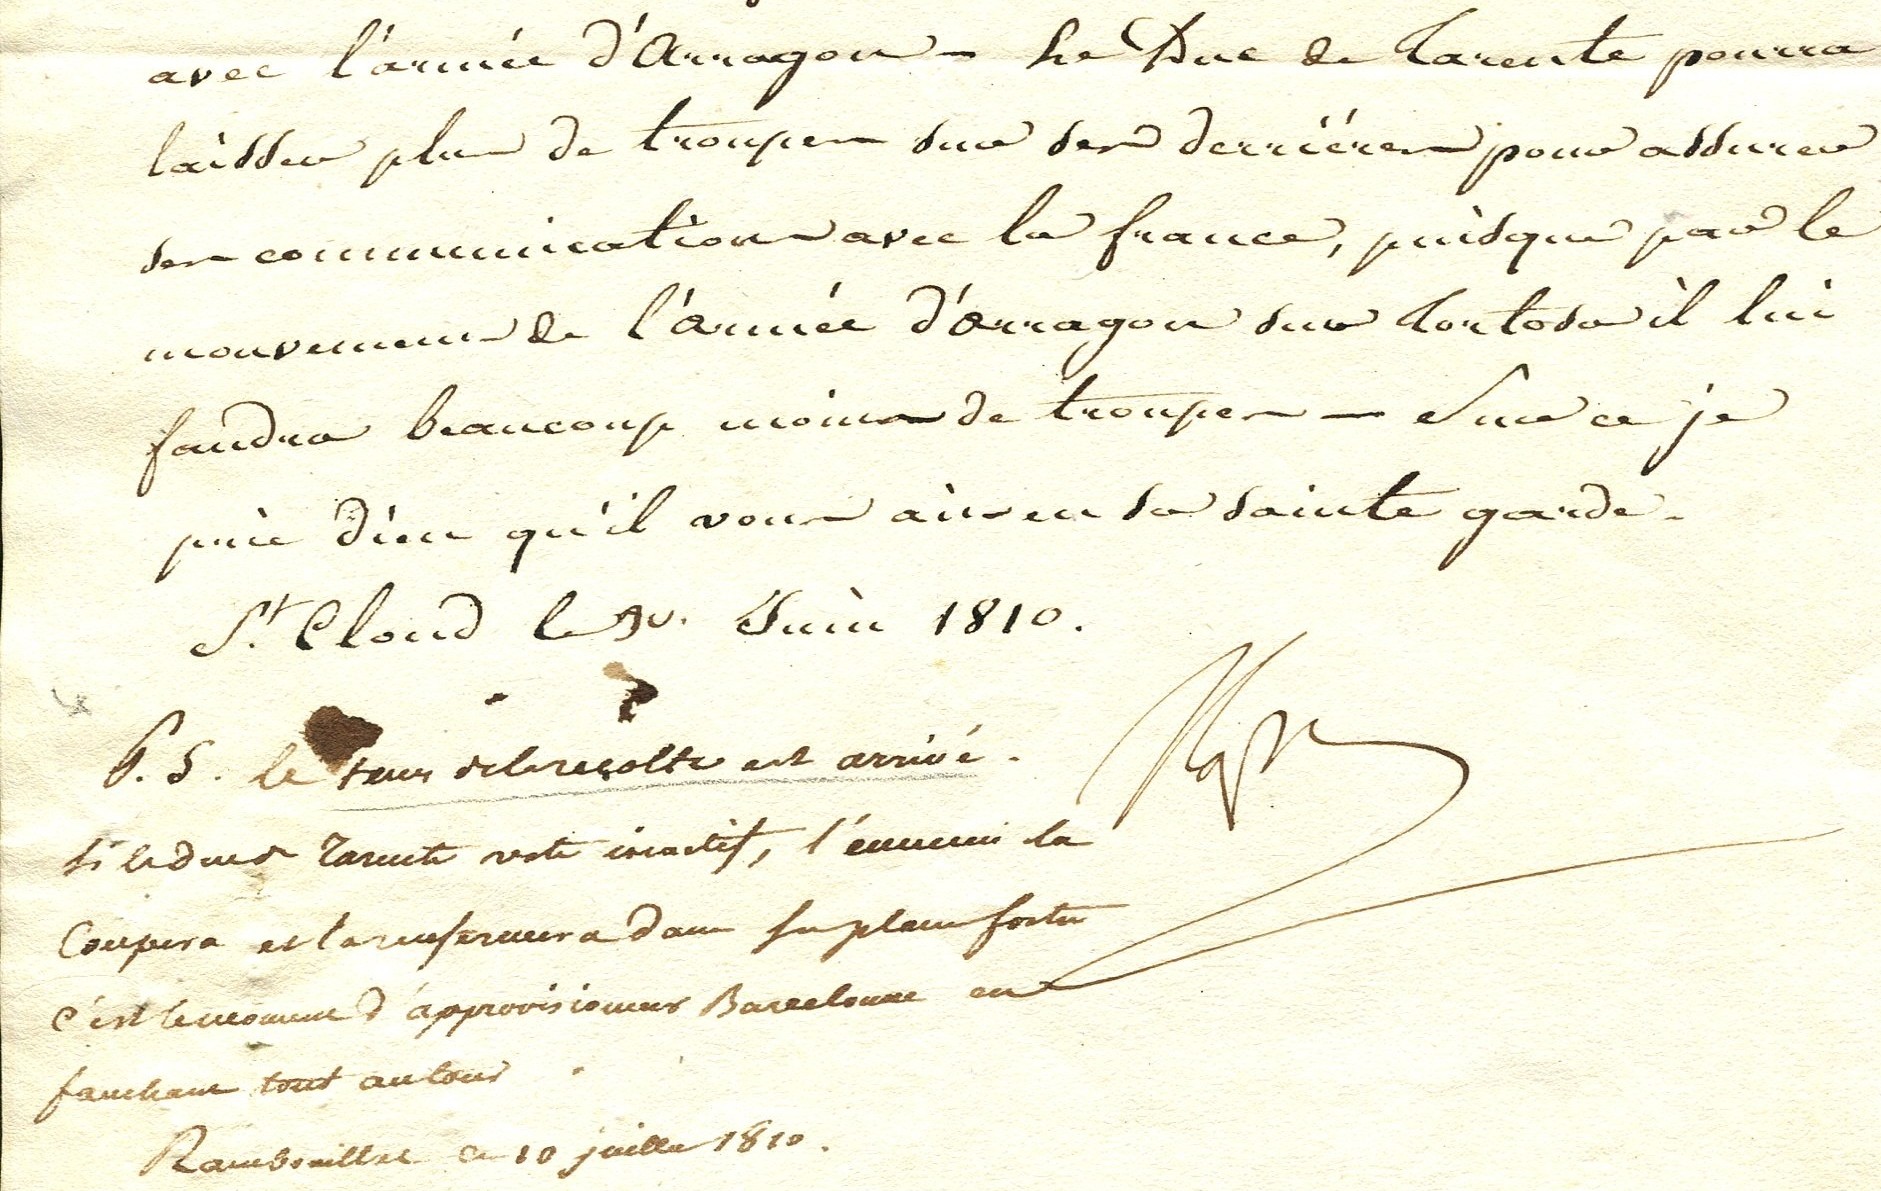 avec l'armée d'Arragon - Le Duc de Tarente pourra
laisser plus de troupes sur ses derrières pour assurer
ses communications avec la france, puisque par le
mouvement de l'armée d'Arragon sur Tortose il lui
faudra beaucoup moins de troupes - Sur ce je
prie dieu qu'il vous ait en sa sainte garde.
St. Cloud le 30. Juin 1810.
P.S. le tems de la recolte est arrivé.
Si le duc de Tarente reste inactif, l'ennemi la
Coupera et la renfermera dans ses places fortes
C'est le moment d'approvisionner Barcelonne en
fauchant tout autour
Rambouillet ce 10 juillet 1810.